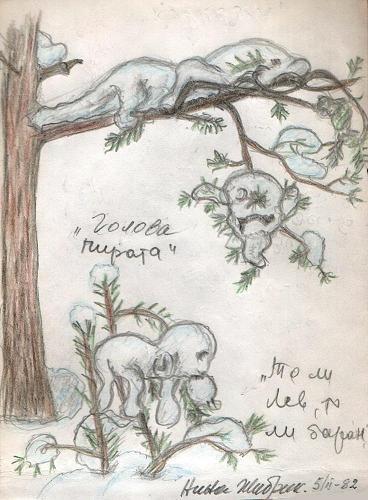 „Голова
пирата"
„То ли
лев, то
ли баран"
Нина 5/II-82